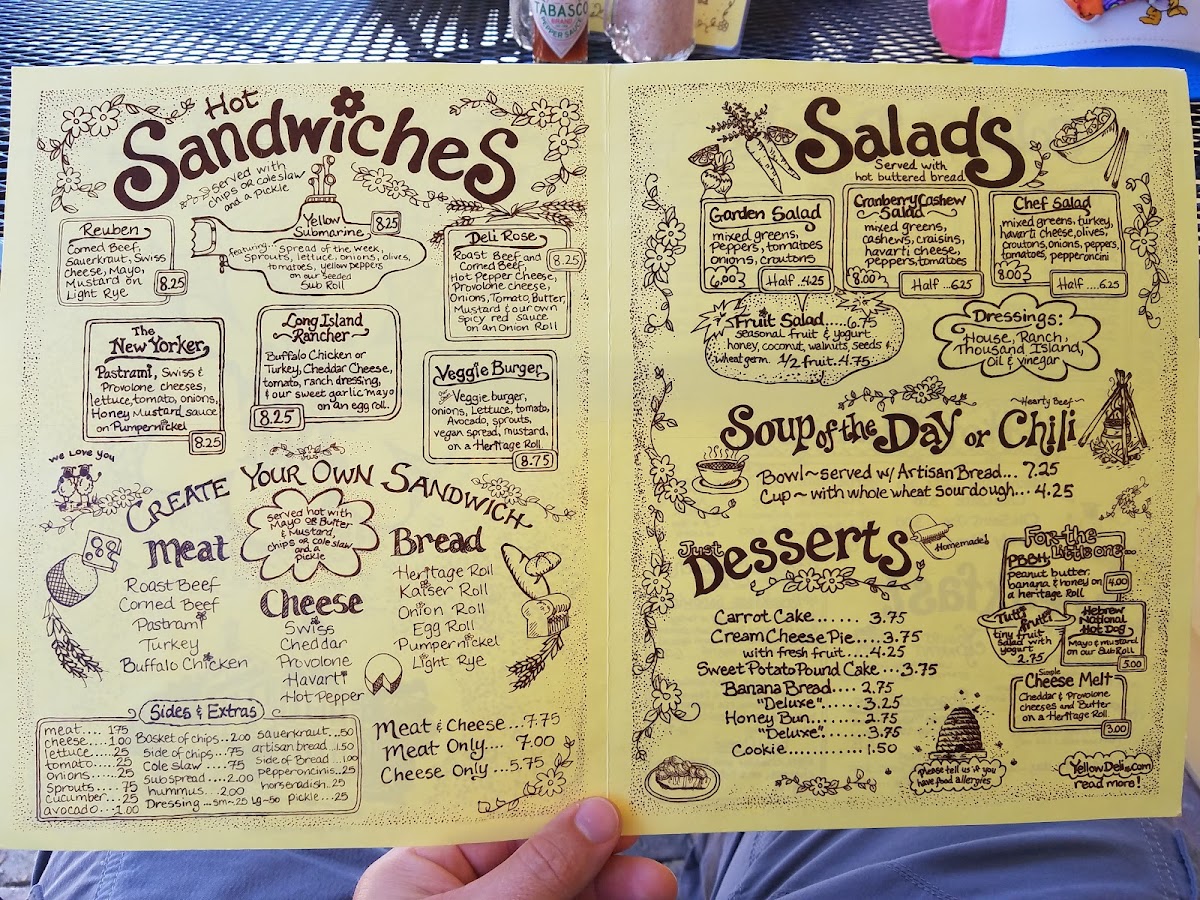 TABASCO
BRAND
PEPPER SAUCE
Hot
Sandwiches
served with
chips or coleslaw
and a pickle
Reuben
Corned Beef,
Sauerkraut, Swiss
cheese, Mayo,
Mustard on
Light Rye
8.25
Yellow
Submarine
8.25
featuring... spread of the week,
sprouts, lettuce, onions, olives,
tomatoes, yellow peppers
on our seeded
Sub Roll
Deli Rose
Roast Beef and
Corned Beef,
8.25
Hot Pepper Cheese,
Provolone cheese,
Onions, Tomato, Butter,
Mustard & our own
spicy red sauce
on an Onion Roll
The
New Yorker
Pastrami, Swiss &
Provolone cheeses,
lettuce, tomato, onions,
Honey Mustard sauce
on Pumpernickel
8.25
Long Island
Rancher
Buffalo Chicken or
Turkey, Cheddar Cheese,
tomato, ranch dressing,
& our sweet garlic mayo
on an egg roll.
8.25
Veggie Burger
Veggie burger,
onions, Lettuce, tomato,
Avocado, sprouts,
vegan spread, mustard,
on a Heritage Roll
8.75
We Love You
Create Your Own Sandwich
served hot with
Mayo or Butter
& Mustard,
chips or coleslaw
and a
pickle
Meat
Roast Beef
Corned Beef
Pastrami
Turkey
Buffalo Chicken
Cheese
Swiss
Cheddar
Provolone
Havarti
Hot Pepper
Bread
Heritage Roll
Kaiser Roll
Onion Roll
Egg Roll
Pumpernickel
Light Rye
Sides & Extras
meat.... 1.75
cheese.....1.00
lettuce.....25
tomato.....25
onions.....25
sprouts.....75
cucumber...25
avocado...1.00
Basket of chips..2.00
side of chips....75
Cole slaw.....75
sub spread....2.00
hummus...2.00
Dressing...sm~25 Lg~50
sauerkraut..50
artisan bread..1.50
side of Bread..1.00
pepperoncinis..25
horseradish.25
pickle...25
Meat & Cheese...7.75
Meat Only.... 7.00
Cheese Only...5.75
Salads
Served with
hot buttered bread
Garden Salad
mixed greens,
peppers, tomatoes
onions, croutons
6.00
Half..4.25
Cranberry Cashew
Salad
mixed greens,
cashews, craisins,
havarti cheese,
peppers, tomatoes
8.00
Half...6.25
Chef Salad
mixed greens, turkey,
havarti cheese, olives,
croutons, onions, peppers,
tomatoes, pepperoncini
8.00
Half....6.25
Fruit Salad.....6.75
seasonal fruit & yogurt
honey, coconut, walnuts, seeds &
wheat germ. 1/2 fruit.4.75
Dressings:
House, Ranch,
Thousand Island,
Oil & vinegar
~Hearty Beef~
Soup of the Day or Chili
Bowl~served w/ Artisan Bread... 7.25
Cup~with whole wheat sourdough... 4.25
Just
Desserts
Homemade!
Carrot Cake...... 3.75
Cream Cheese Pie....3.75
with fresh fruit....4.25
Sweet Potato Pound Cake...3.75
Banana Bread.... 2.75
"Deluxe"..... 3.25
Honey Bun..... 2.75
"Deluxe"..... 3.75
Cookie..........1.50
For the
Little one...
PBBH
peanut butter,
banana & honey on
a heritage Roll
4.00
Tutti
frutti
tiny fruit
salad with
yogurt
2.75
Hebrew
National
Hot Dog
Mayo & mustard
on our Sub Roll
5.00
Simple
Cheese Melt
Cheddar & Provolone
cheeses and Butter
on a Heritage Roll
3.00
Please tell us if you
have food allergies
YellowDeli.com
read more!